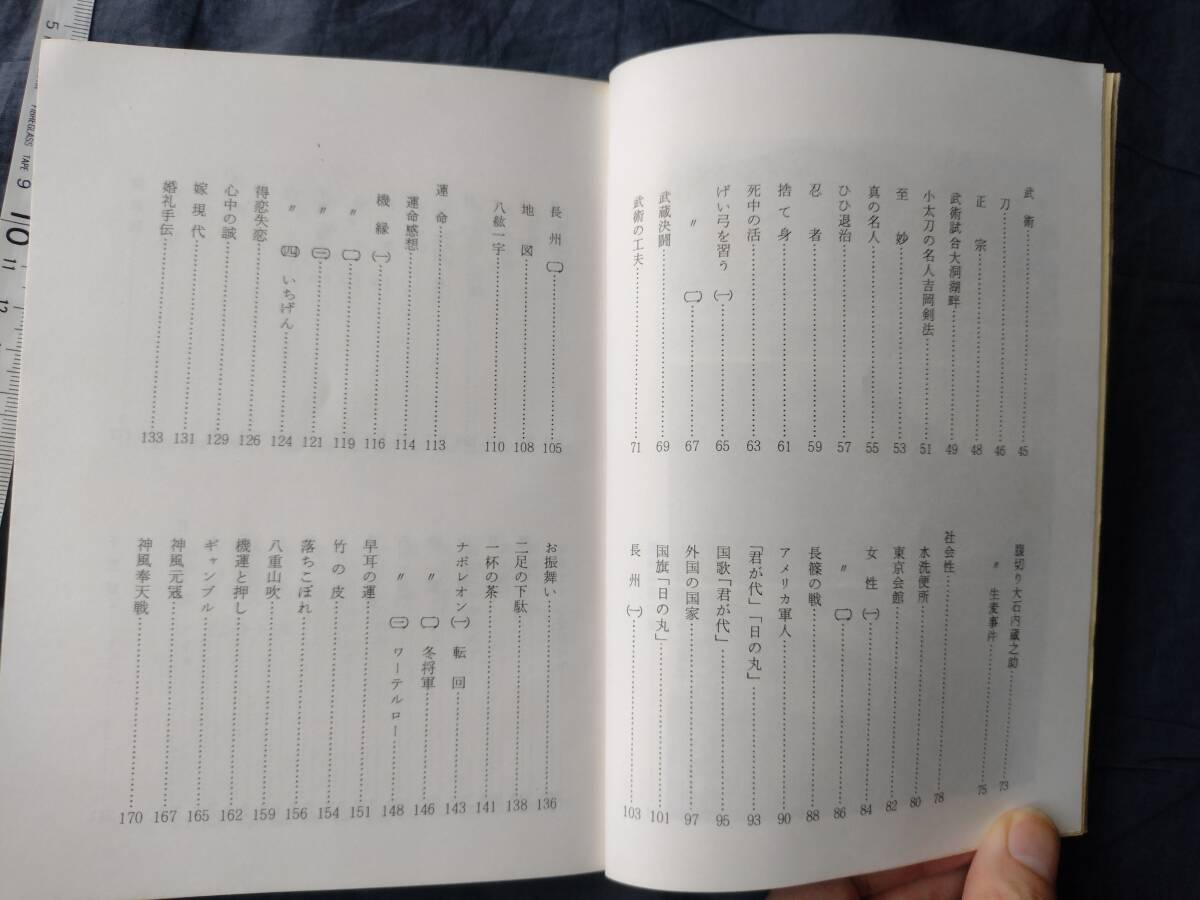 武術……45
刀……46
正宗……48
武術試合大洞湖畔……49
小太刀の名人吉岡剣法……51
至妙……53
真の名人……55
ひひ退治……57
忍者……59
捨て身……61
死中の活……63
げい弓を習う(一)……65
〃(二)……67
武蔵決闘……69
武術の工夫……71
腹切り大石内蔵之助……73
〃生麦事件……75
社会性……78
水洗便所……80
東京会館……82
女性(一)……84
〃(二)……86
長篠の戦……88
アメリカ軍人……90
「君が代」「日の丸」……93
国歌「君が代」……95
外国の国家……97
国旗「日の丸」……101
長州(一)……103
長州(二)……105
地図……108
八紘一宇……110
運命……113
運命感想……114
機縁(一)……116
〃(二)……119
〃(三)……121
〃(四)いちげん……124
得恋失恋……126
心中の誠……129
嫁現代……131
婚礼手伝……133
お振舞い……136
二足の下駄……138
一杯の茶……141
ナポレオン(一)転回……143
〃(二)冬将軍……146
〃(三)ワーテルロー……148
早耳の運……151
竹の皮……154
落ちこぼれ……156
八重山吹……159
機運と押し……162
ギャンブル……165
神風元寇……167
神風奉天戦……170
5
FIBREGLASS TAPE
9
10
11
12